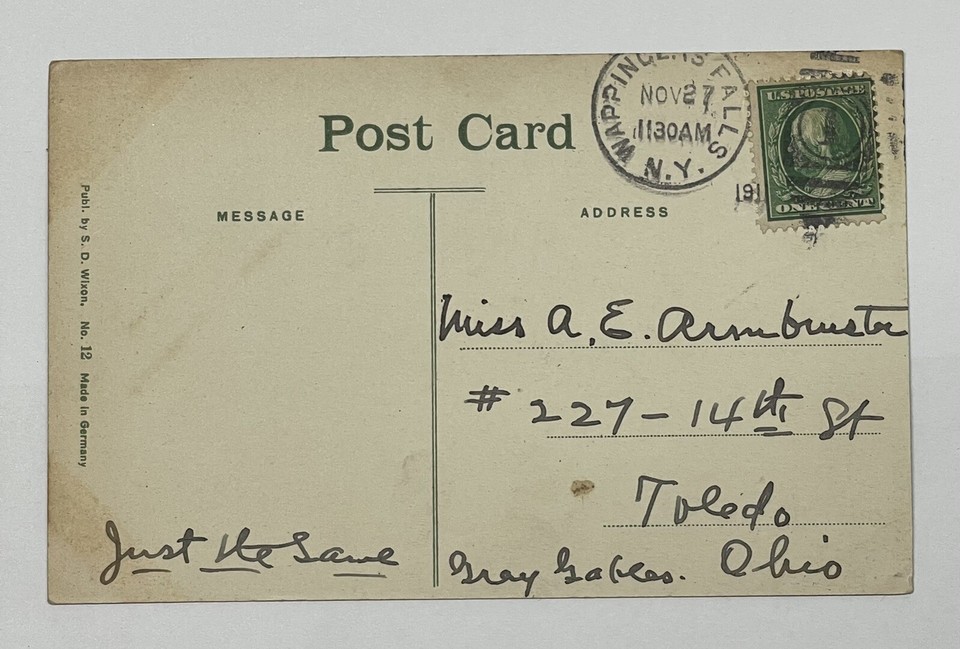 Post Card
WAPPINGERS FALLS
NOV 27
1130AM
N.Y.
191
U.S. POSTAGE
ONE CENT
MESSAGE
ADDRESS
Publ. by S. D. Wixon, No. 12 Made in Germany
Miss A. E. Armbruster
# 227 - 14th St
Toledo
Ohio
Gray Gables.
Just the Same